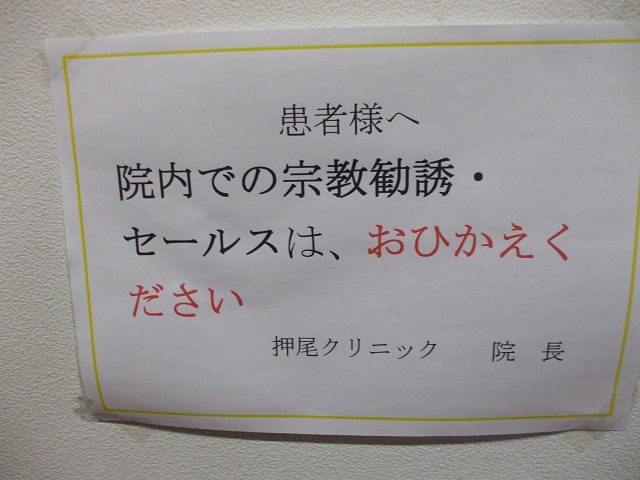 患者様へ
院内での宗教勧誘・
セールスは、おひかえく
ださい
押尾クリニック　院　長